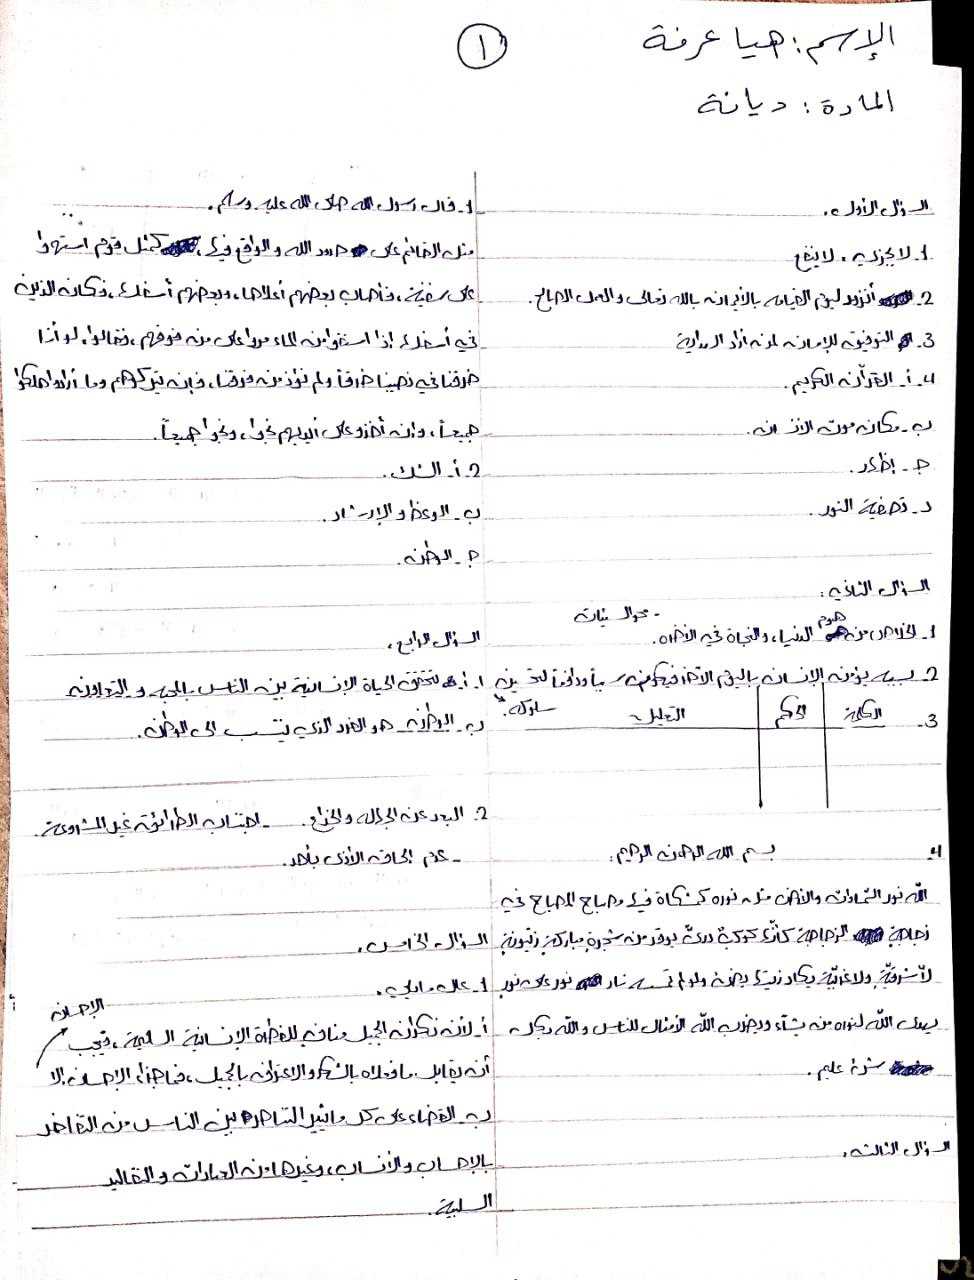 الإسم: هيا عرفة
١
المادة: ديانة
السؤال الأول.
1- لا يجزي، لا ينفع
2- أتزود ليوم القيامة بالأيمان بالله تعالى والعمل الصالح.
3- التوفيق للإيمان لمن أراد الهداية
4- أ- القرآن الكريم.
ب- مكان موت الأنسان.
ج- إظهار.
د- تصفية النور.
السؤال الثاني:
- محو السيئات
1- الخلاص من هموم الدنيا، والنجاة في الآخرة.
2- يؤمن الإنسان باليوم الآخر فيكون دافعاً لتحسين
سلوكه.
3- الكلمة الحكم التعليل
4- بسم الله الرحمن الرحيم:
الله نور السماوات والأرض مثل نوره كمشكاة فيها مصباح المصباح في
زجاجة الزجاجة كأنها كوكب دريّ يوقد من شجرة مباركة زيتونة
لا شرقيّة ولا غربيّة يكاد زيتها يضيء ولو لم تمسسه نار نور على نور
يهدي الله لنوره من يشاء ويضرب الله الأمثال للناس والله بكل
شيء عليم.
السؤال الثالث.
1- قال رسول الله صلى الله عليه وسلم.
مثل القائم على حدود الله والواقع فيها، كمثل قوم استهموا
على سفينة، فأصاب بعضهم أعلاها، وبعضهم أسفلها، فكان الذين
في أسفلها إذا استقوا من الماء مروا على من فوقهم، فقالوا: لو أنا
خرقنا في نصيبنا خرقاً ولم نؤذ من فوقنا، فإن تركوهم وما أرادوا هلكوا
جميعاً، وإن أخذوا على أيديهم نجوا، ونجوا جميعاً.
2- أ- الشك.
ب- الوعظ والإرشاد.
ج- الوطن.
السؤال الرابع.
1- أ- تتحقق الحياة الإنسانية بين الناس بالمحبه والتعاون
ب- المواطن هو الفرد الذي ينتسب الى الوطن.
2- البعد عن الجدال والخداع. - اجتناب الطرائق غير المشروعة.
- عدم إلحاق الأذى بأحد.
السؤال الخامس.
1- علل ما يلي.
الإحسان
أ- لأن نكران الجميل مناف للفطرة الإنسانية السليمة، فيجب
أن يقابل ما فعلاه بالشكر والاعتراف بالجميل، فما جزاء الإحسان إلا
ب- القضاء على كل ما يثير التناحر بين الناس من التفاخر
بالإحساب والأنساب، وغيرها من العادات والتقاليد
السلبية.